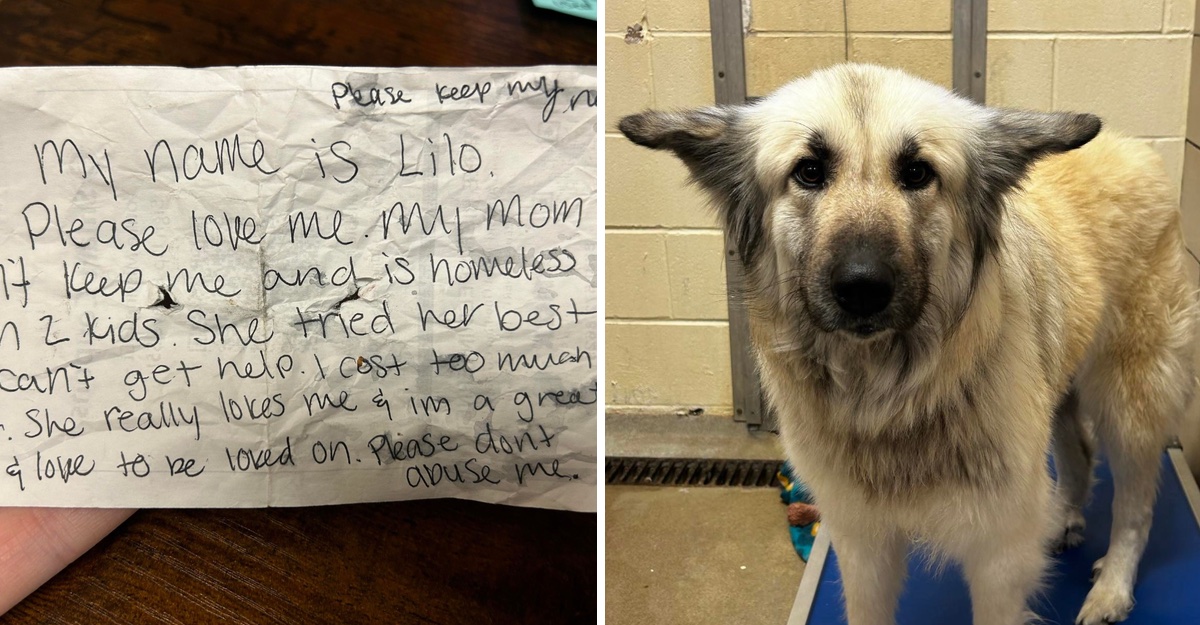 Please keep my
My name is Lilo.
Please love me. My Mom
keep me and is homeless
2 kids. She tried her best
can't get help. I cost too much
She really loves me & im a great
& love to be loved on. Please dont
abuse me.